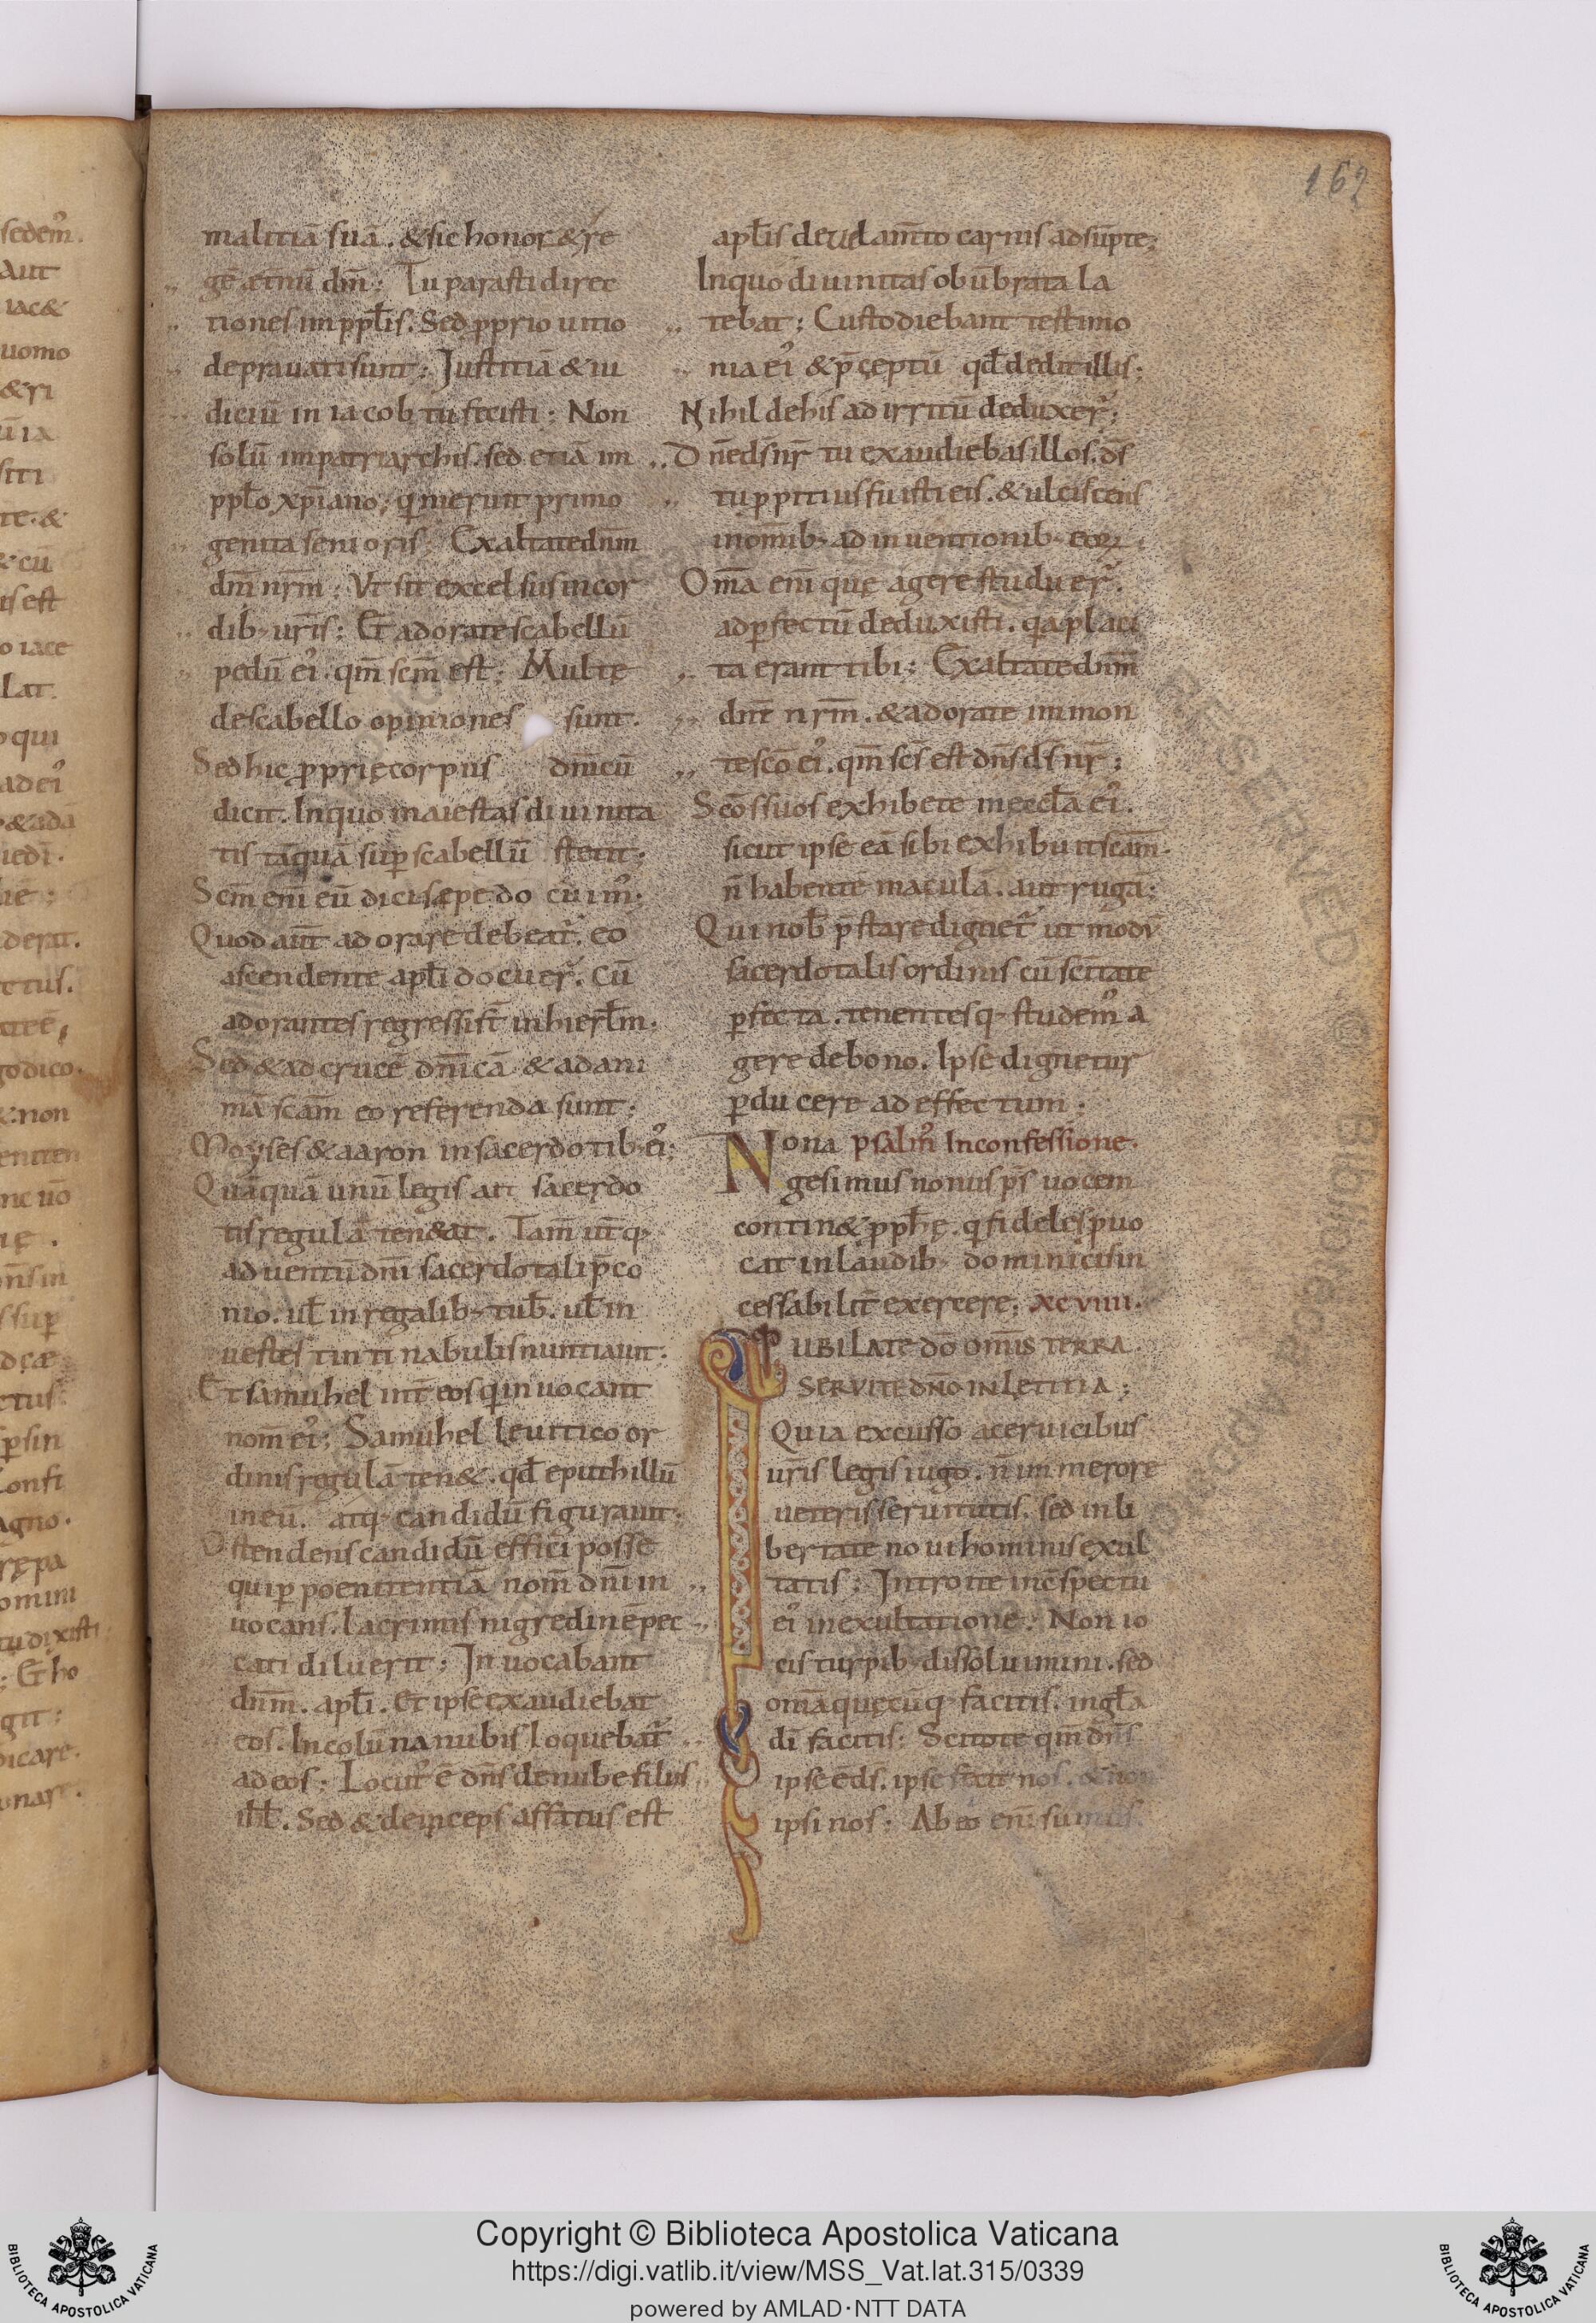 162
malitiā suā. & sic honor & re
gē ęt̄nū dm̄; Tu parasti direc
tiones in ppl̄is. Sed pprio uitio
deprauati sunt; Justitiā & iu
diciū in iacob tu fecisti; Non
solū in patriarchis. sed etiā in
ppl̄o xp̄iano; q merunt primo
genita senioris; Exaltate dnm̄
dm̄ nrm̄; Vt sit excelsus in cor
dib; uris̄; Et adorate scabellū
pedū ei᾽. qm̄ scm̄ est; Multę
de scabello opiniones sunt.
Sed hic pprię corpus dnīcū
dicit. In quo maiestas diuinita
tis tāquā sup scabellū stetit;
Scm̄ eni eū dici sępe do cuim᾽;
Quod aūt adorare debeat᾽. eo
ascendente apl̄i docuer᾽. Cū
adorantes regressi st̄ in hierl̄m.
Sed & ad crucē dnīcā & ad ani
mā scām eo referenda sunt;
Moyses & aaron in sacerdotib; ei᾽;
Quāquā unū legis alt sacerdo
tis regulā ten&at. Tam̄ ut̄q;
aduentū dnī sacerdotali p̄co
nio. ul̄ in regalib; tub̄. ul̄ in
uestes tintinabulis nuntiaut̄.
Et samuhel int̄ eos q inuocant
nom̄ ei᾽; Samuhel leuitico or
dinis regulā ten&. qd̄ eputhillū
in eū. atq; candidū figuraunt;
Ostendens candidū effici posse
qui p poenitentiā nom̄ dnī in
uocans. lacrimis nigredinē pec
cati diluerit; Inuocabant
dnm̄. apl̄i. Et ipse exaudiebat
eos. In colūna nubis loquebat᾽
ad eos; Locut᾽ ē dns̄ de nube filiis
ihl̄. Sed & deinceps affatus est
apl̄is de uelam̄to carnis adsūpte;
In quo diuinitas obūbrata la
tebat; Custodiebant testimo
nia ei᾽ & p̄ceptū qd̄ dedit illis;
Nihil de his ad irritū deduxer᾽;
Dn̄e ds̄ nr̄ tu exaudiebas illos. ds̄
tu ppitius fuisti eis. & ulciscens
in om̄ib; adinuentionib; eoꝝ.
Om̄a eni quę agere studuer᾽.
ad pfectū deduxisti. qa placi
ta erant tibi; Exaltate dnm̄
dnm̄ nrm̄. & adorate in mon
te scō ei᾽. qm̄ scs̄ est dns̄ ds̄ nr̄;
Scōs suos exhibete in eccl̄a ei᾽.
sicut ipse eā sibi exhibuit scam̄.
n̄ habente maculā. aut rugā;
Qui nob̄ p̄stare dignet᾽ ut modū
sacerdotalis ordinis cū scītate
pfecta. tenentesq; studem᾽ a
gere de bono. Ipse dignetur
pducere ad effectum;
Nona psalm᾽ In confessione.
gesimus nonus ps̄ uocem
contin& pph̄ę. q fideles puo
cat in laudib; dominicis in
cessabilit̄ exercere. xcviiii.
IUBILATE DŌ OMNIS TERRA.
SERVITE DNŌ IN LETITIA;
Quia excusso a ceruicibus
uris̄ legis iugo. n̄ in merore
ueteris seruitutis. sed in li
bertate noui hominis exul
tatis; Introite in c̄spectu
ei᾽ in exultatione; Non io
cis turpib; dissoluimini. sed
omā quęcūq; facitis. in gl̄a
di facitis; Scitote qm̄ dns̄
ipse ē ds̄. ipse fecit nos. & non
ipsi nos; Ab eo eni sumus.
sedem᾽.
Aut
iac&
uomo
& ri
ū ix
siti
te. &
& cū
is est
o iace
lat.
o qui
ad ei᾽
Copyright © Biblioteca Apostolica Vaticana
https://digi.vatlib.it/view/MSS_Vat.lat.315/0339
powered by AMLAD·NTT DATA
BIBLIOTECA APOSTOLICA VATICANA
BIBLIOTECA APOSTOLICA VATICANA